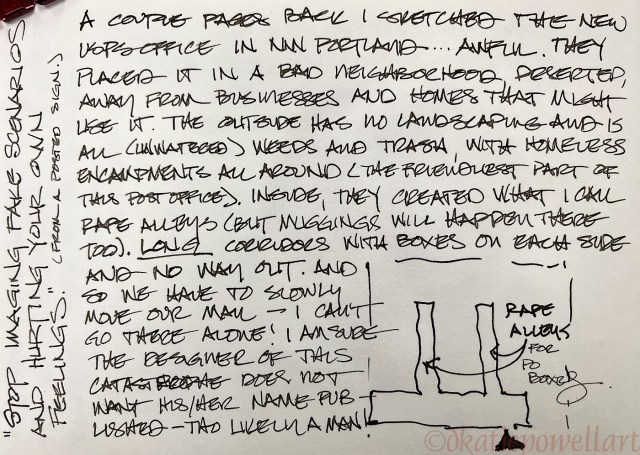 A COUPLE PAGES BACK I SKETCHED THE NEW
USPS OFFICE IN NW PORTLAND... AWFUL. THEY
PLACED IT IN A BAD NEIGHBORHOOD, DESERTED,
AWAY FROM BUSINESSES AND HOMES THAT MIGHT
USE IT. THE OUTSIDE HAS NO LANDSCAPING AND IS
ALL (UNWATERED) WEEDS AND TRASH, WITH HOMELESS
ENCAMPMENTS ALL AROUND (THE FRIENDLIEST PART OF
THIS POST OFFICE). INSIDE, THEY CREATED WHAT I CALL
RAPE ALLEYS (BUT MUGGINGS WILL HAPPEN THERE
TOO). LONG CORRIDORS WITH BOXES ON EACH SIDE
AND NO WAY OUT. AND
SO WE HAVE TO SLOWLY
MOVE OUR MAIL — I CAN'T
GO THERE ALONE! I AM SURE
THE DESIGNER OF THIS
CATASTROPHE DOES NOT
WANT HIS/HER NAME PUB-
LISHED — THO LIKELY A MAN!
RAPE
ALLEYS
FOR
PO
BOXES
"STOP IMAGING FAKE SCENARIOS
AND HURTING YOUR OWN
FEELINGS." (FROM A POSTED SIGN.)
©dkatiepowellart